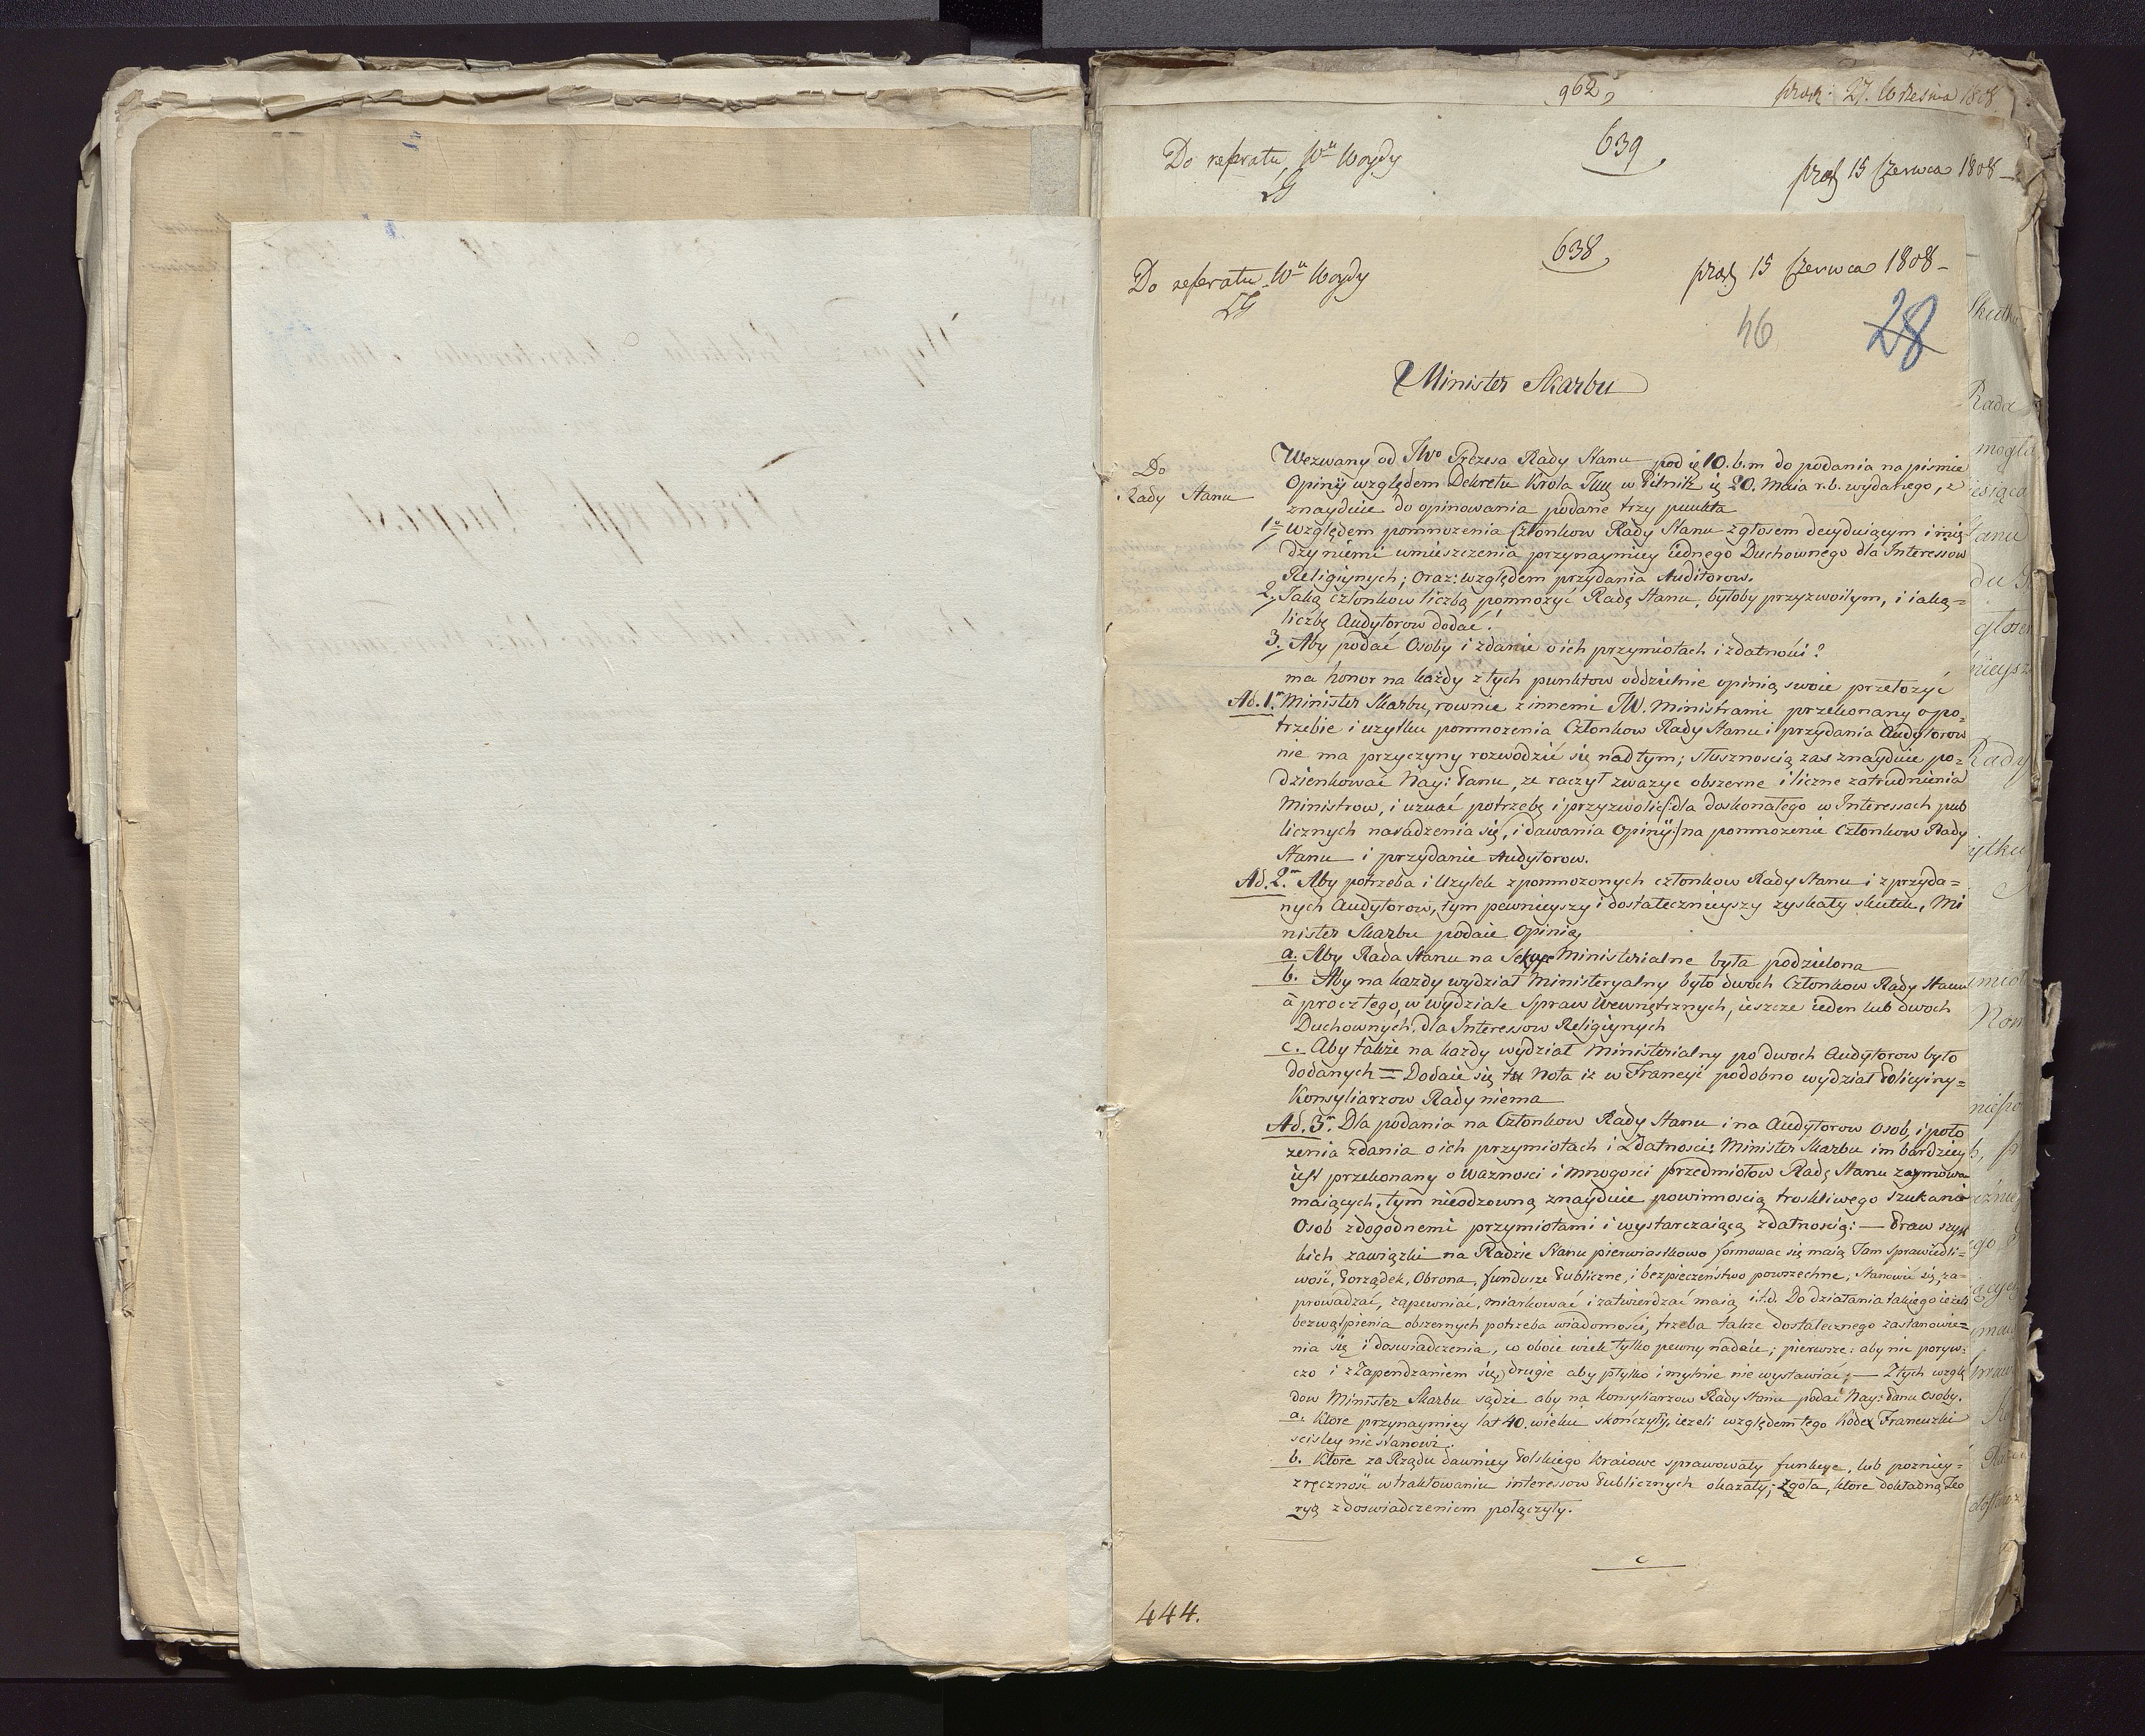 962,
praes: 27. Września 1808
Do referatu Wu Woydy
639
praes 15 Czerwca 1808 –
LG
Do referatu Wu Woydy
638
praes 15 Czerwca 1808 –
LG
46
28
Minister Skarbu
Do
Rady Stanu
Wezwany od JWo Prezesa Rady Stanu pod 10. b. m do podania na pismie
Opinij względem Dekretu Krola Jmci w Pilnitz 20. Maia r. b. wydanego,
znayduie do opinowania podane trzy punkta
1o Względem pomnożenia Członkow Rady Stanu z głosem decyduiącym i mię-
dzy niemi umieszczenia przynaymniey iednego Duchownego dla Interessow
Religiynych; oraz: względem przydania Auditorow.
2. Jaką członkow liczbą pomnożyć Radę Stanu, byłoby przyzwoitym, i iaką=
liczbę Audytorow dodać?
3. Aby podać Osoby i zdanie o ich przymiotach i zdatności?
ma honor na każdy z tych punktow oddzielnie opinią swoie przełożyć
Ad. 1m Minister Skarbu, rownie z innemi JW. Ministrami przekonany o po=
trzebie i użytku pomnożenia Członkow Rady Stanu i przydania Audytorow
nie ma przyczyny rozwodzić się nad tym; słusznością zas znayduie po=
dziękować Nay: Panu, ze raczył zwazyc obszerne i liczne zatrudnienia
Ministrow, i uznać potrzebę i przyzwolić /:dla doskonałego w Interessach pub
licznych naradzenia się, i dawania Opinij:/ na pomnożenie Członkow Rady
Stanu i przydanie Audytorow.
Ad. 2m Aby potrzeba i Uzytek z pomnożonych członkow Rady Stanu i z przyda=
nych Audytorow, tym pewnieyszy i dostatecznieyszy zyskały skutek, Mi
nister Skarbu podaie Opinią
a. Aby Rada Stanu na Sekcye Ministerialne była podzielona
b. Aby na każdy wydział Ministeryalny było dwoch Członkow Rady Stanu
à procz tego, w wydziale Spraw Wewnętrznych, ieszcze ieden lub dwoch
Duchownych dla Interessow Religiynych
c. Aby także na każdy wydział Ministerialny po dwoch Audytorow było
dodanych = Dodaie się tu Nota iz w Francyi podobno wydział Policyiny=
Konsyliarzow Rady niema
Ad. 3m Dla podania na Członkow Rady Stanu i na Audytorow Osob, i poło
zenia zdania o ich przymiotach i zdatności: Minister Skarbu im bardziey
iest przekonany o wazności i mnogości przedmiotow Radę Stanu zaymowa
maiących, tym nieodzowną znayduie powinnością troskliwego szukania
Osob z dogodnemi przymiotami i wystarczaiącą zdatnością: — Praw wszyst
kich zawiązki na Radzie Stanu pierwiastkowo formowac się maią Tam sprawiedli=
wość, Porządek, Obrona, fundusze Publiczne, i bezpieczeństwo powszechne, Stanowić się, za=
prowadzać, zapewniać, miarkować i zatwierdzać maią i.t.d. Do działania takiego ieżeli
bez wątpienia obszernych potrzeba wiadomości, trzeba także dostatecznego zastanowie=
nia się i doswiadczenia, co oboie wiek tylko pewny nadaie; pierwsze: aby nie poryw:
czo i z Zapendzaniem się, drugie aby płytko i mylnie nie wystawiać; — Z tych wzglę
dow Minister Skarbu sądzi aby na Konsyliarzow Rady Stanu podać Nay: Panu Osoby.
a. Ktore przynaymniey lat 40. wieku skończyły, ieżeli względem tego Kodex Francuzki
scisley nie stanowi.
b. Ktore za Rządu dawniey Polskiego Kraiowe sprawowały funkcye, lub poźniey=
zręczność w traktowaniu interessow Publicznych okazały; zgoła, ktore dokładną Teo
ryą z doswiadczeniem połączyły.
c
444.